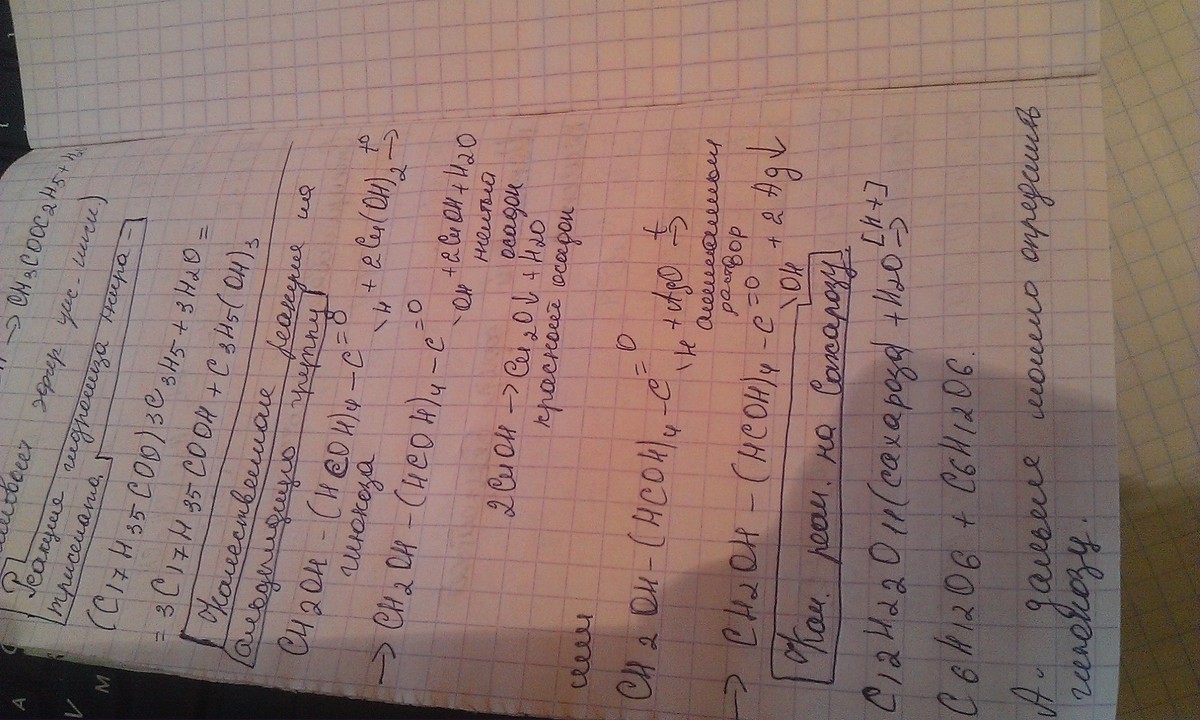 → CH3COOC2H5 + H2
эфир укс. кисл.)
Реакция гидролиза жира -
тристеата
(C17H35COO)3C3H5 + 3H2O =
= 3C17H35COOH + C3H5(OH)3
Качественные реакции на
альдегидную группу
CH2OH - (HCOH)4 - C=O
\H + 2Cu(OH)2 t° →
глюкоза
→ CH2OH - (HCOH)4 - C=O
\OH + 2CuOH + H2O
желтый
осадок
2CuOH → Cu2O↓ + H2O
красный осадок
или
CH2OH - (HCOH)4 - C=O
\H + AgO t →
аммиачный
раствор
→ CH2OH - (HCOH)4 - C=O
\OH + 2Ag↓
Кач. реак. на Сахарозу
C12H22O11 (сахароза) + H2O [H+] →
C6H12O6 + C6H12O6.
А. дальше можно определить
глюкозу.
V
A
M